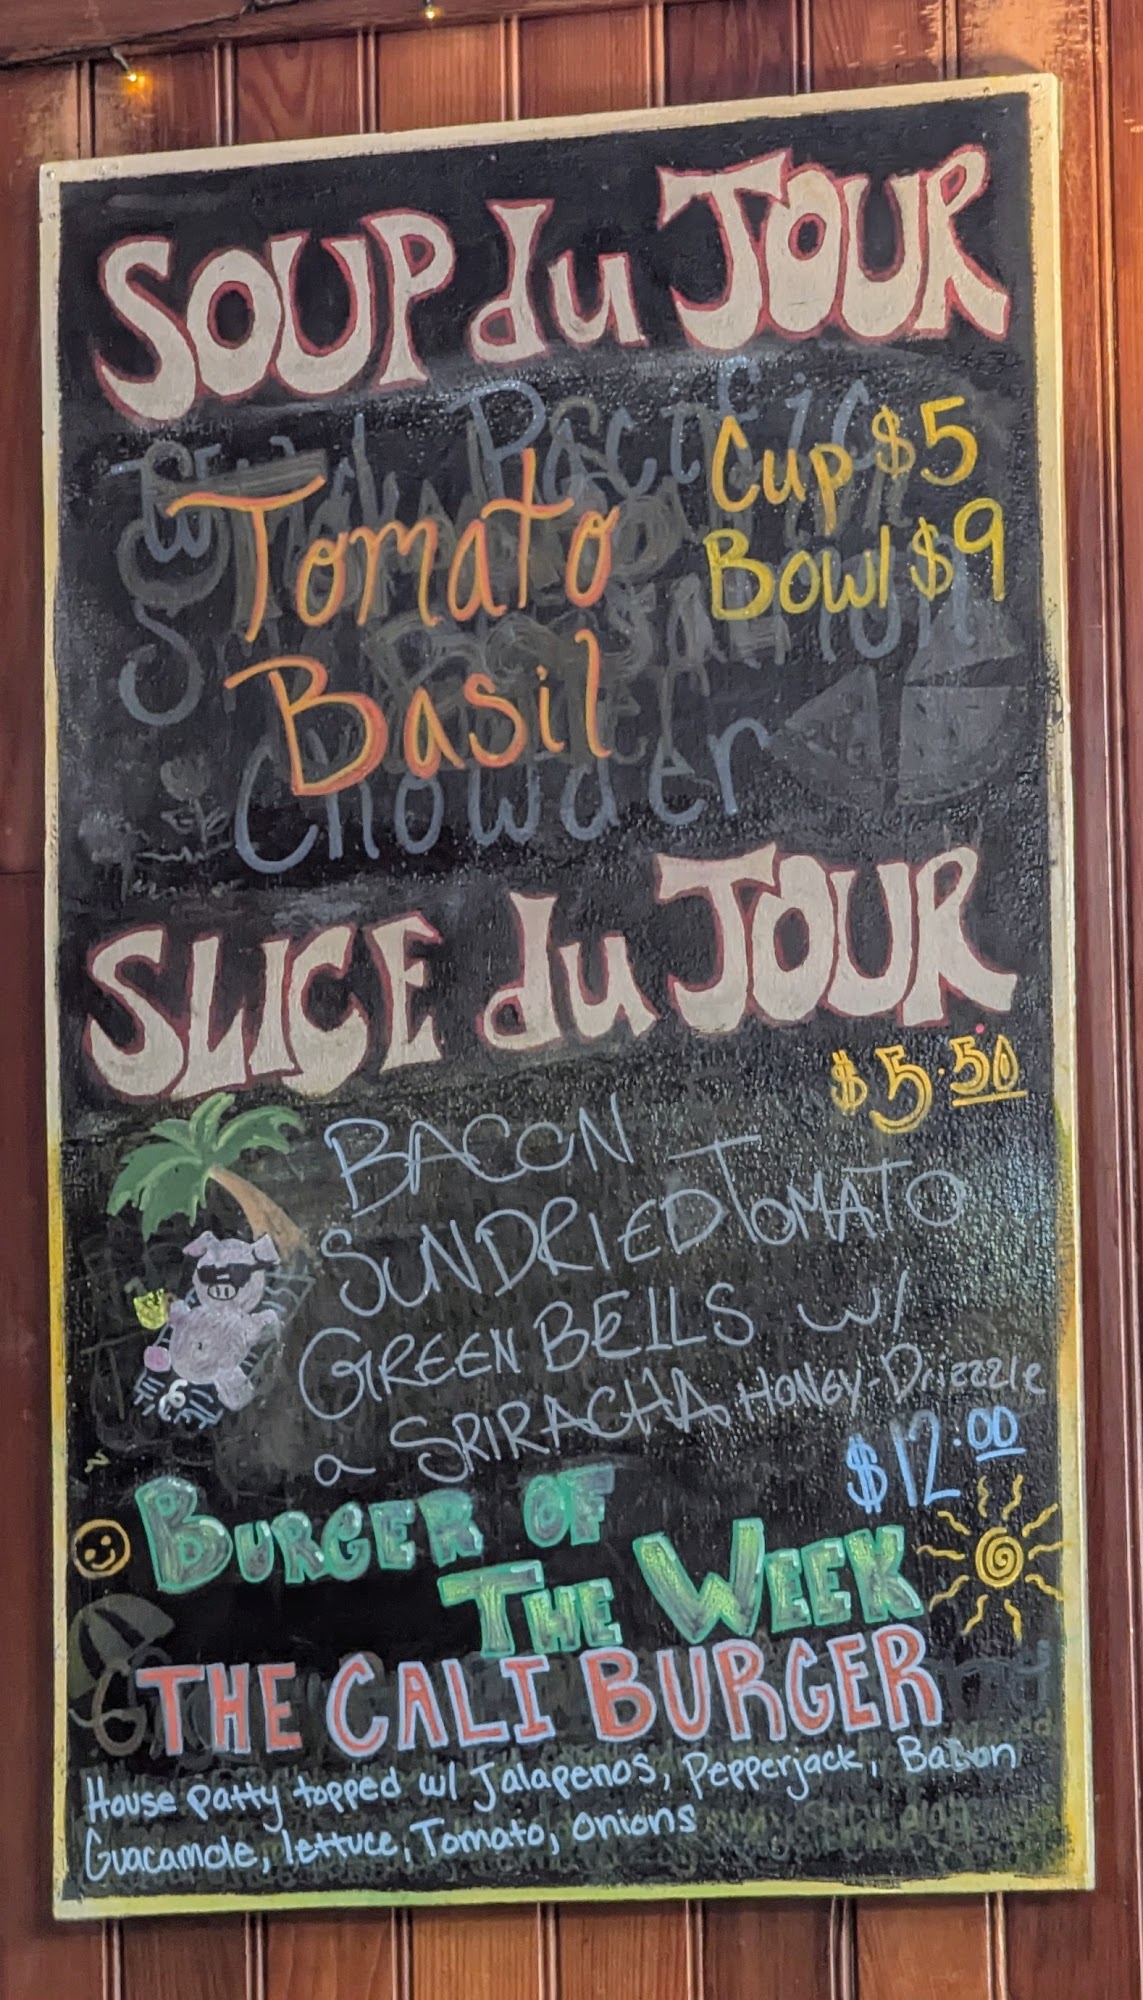 SOUP du JOUR
Pacific
Cup $5
Tomato
Bowl $9
Basil
Chowder
SLICE du JOUR
$5.50
BACON
SUNDRIED TOMATO
GREEN BELLS w/
a SRIRACHA HONEY-Drizzzle
$12.00
BURGER OF
THE WEEK
THE CALI BURGER
House patty topped w/ Jalapenos, Pepperjack, Bacon
Guacamole, lettuce, Tomato, onions